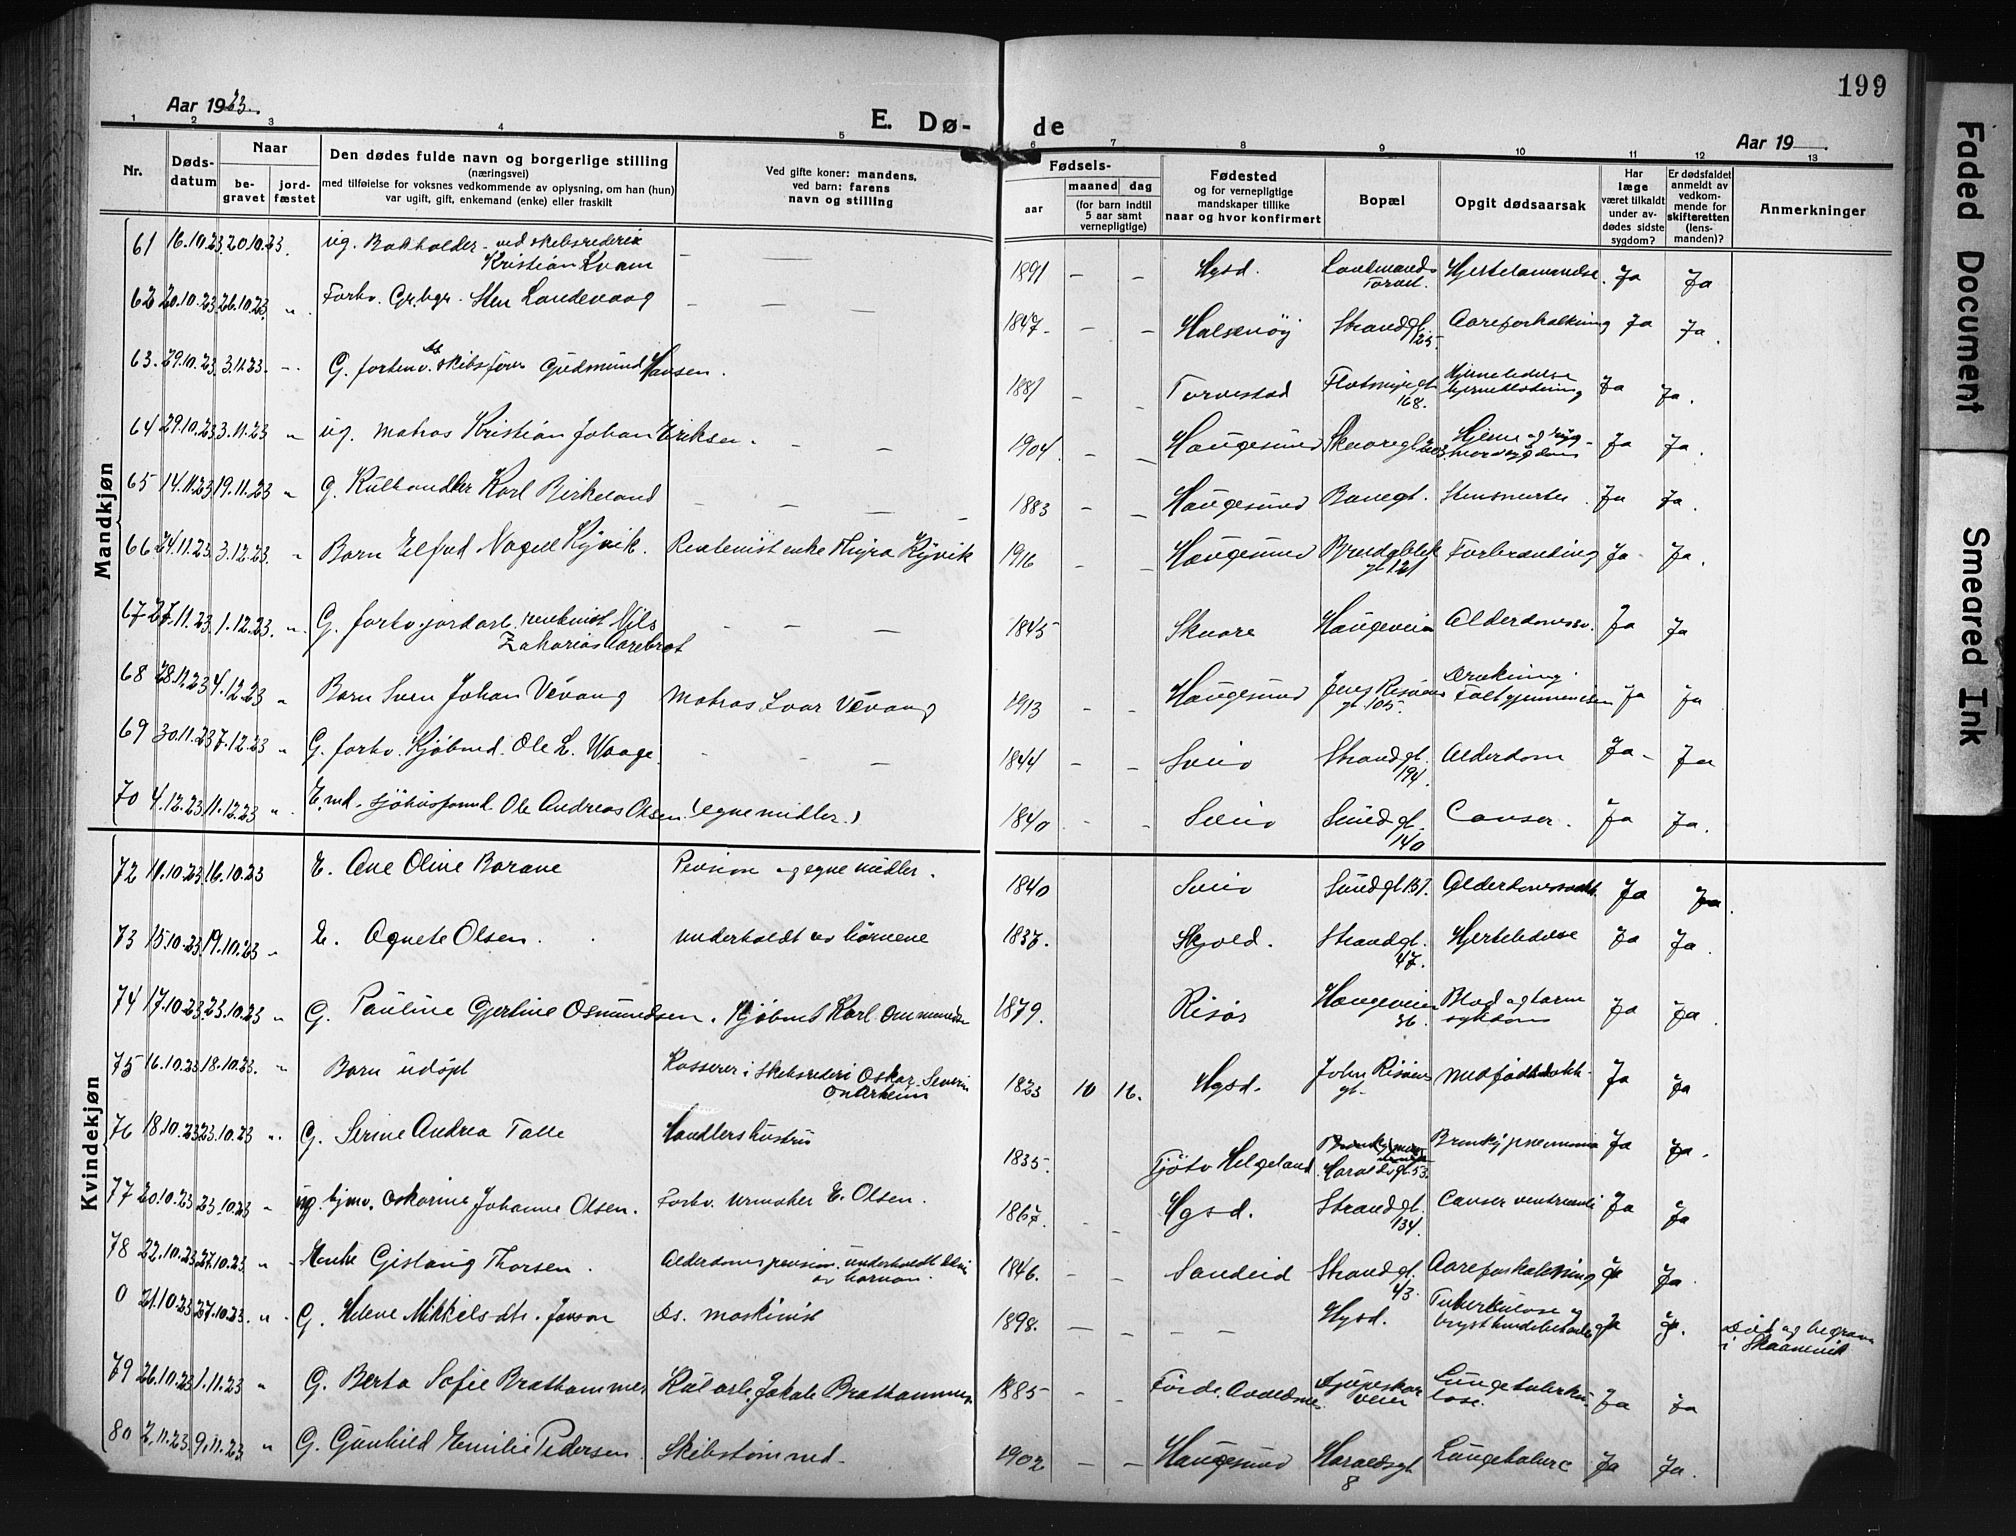 199
Aar 1923.
E. Dø-
de
Aar 19
1 2 3 4 5 6 7 8 9 10 11 12 13
Nr.
Døds-
datum
Naar
be-
gravet
jord-
fæstet
Den dødes fulde navn og borgerlige stilling
(næringsvei)
med tilføielse for voksnes vedkommende av oplysning, om han (hun)
var ugift, gift, enkemand (enke) eller fraskilt
Ved gifte koner: mandens,
ved barn: farens
navn og stilling
Fødsels-
aar
maaned
dag
(for barn indtil
5 aar samt
vernepligtige)
Fødested
og for vernepligtige
mandskaper tillike
naar og hvor konfirmert
Bopæl
Opgit dødsaarsak
Har
læge
været tilkaldt
under av-
dødes sidste
sygdom?
Er dødsfaldet
anmeldt av
vedkom-
mende for
skifteretten
(lens-
manden)?
Anmerkninger
Mandkjøn
61 16.10.23 20.10.23. ug. Bokholder ved skibsrederie
Kristian Kvam
1891 – – Hgsd. Torvet. Ja Ja
62 20.10.23 26.10.23. " Forhv. Gr.bgr. Sten Landevaag
1847. – – Halsenøy Strandgt. 125. Aareforkalkning Ja Ja.
63. 29.10.23. 3.11.23. G. forhenv. skibsfører Gudmund Hansen.
1881 – – Torvestad Flotmyrgt 168. Ja Ja.
64 29.10.23 3.11.23 " ug. matros Kristian Johan Eriksen.
1904. – – Haugesund Ja Ja.
65 14.11.23 19.11.23 " G. Kulhandler Karl Birkeland
1883 – – Haugesund Banegt. Ja Ja.
66 24.11.23. 3.12.23. " Barn Elfred Kyvik. enke Thyra Kyvik
1916 – – Haugesund gt 121 Forbrænding Ja Ja.
67 27.11.23. 1.12.23. ". G. forhv. jordarb. Nils
Zakarias Aarebrot
1845 Skaare Haugeveien Alderdomssv. Ja Ja
68 28.11.23 4.12.23 " Barn Sven Johan Vevang Matros Ivar Vevang
1913 – – Haugesund gt. 105. Drukning. Ja Ja
69 30.11.23 7.12.23 " G. forhv. Kjøbmd. Ole L. Waage.
1844 – – Sveio Strandgt. 194. Alderdom Ja Ja
70 4.12.23 11.12.23 " E.md. Ole Andreas Olsen (egne midler.)
1840 Sveio Smedgt. 140 Canser. Ja Ja.
Kvindekjøn
72 11.10.23 16.10.23 E. Ane Oline Pension og egne midler.
1840 Sveio Smedgt 131. Ja Ja.
73 15.10.23. 19.10.23 " E. Agnete Olsen. underholdt av børnene
1837. Skjold. Strandgt. 47. Ja Ja.
74 17.10.23 23.10.23 " G. Pauline Gjertine Osmundsen. Kjøbmd Karl
1879. Risør Haugeveien 36. Blod og tarm sykdom Ja Ja.
75 16.10.23 18.10.23. " Barn udøpt Kasserer i Skibsrederi Oskar Severin
1823 10 16. Hgsd. Ja Ja
76 18.10.23 23.10.23 ". G. Serine Andrea Talle Handlershustru
1835. Tjøtø Helgeland Haraldsgt 53. Ja Ja.
77 20.10.23 23.10.23 " ug. hjmv. Oskarine Johanne Olsen. Forhv. urmaker E. Olsen.
1867. Hgsd. Strandgt. 134. Canser ventriculi Ja Ja
78 22.10.23 27.10.23 " Enke Gislaug Thorsen. Alderdomspension. underholdt delvis
av barnan.
1846. – – Sandeid Strandgt. 43. Aareforkalkning Ja Ja.
0 21.10.23 27.10.23 ". G. Helene Mikkelsdtr. Ds. maskinist
1898. – – – – Hgsd. Tuberkulose og Ja Død og begravet
i Skaanevik
79 26.10.23 1.11.23 " G. Berta Sofie Brathammer Kularb. Jakob Brathammer.
1885 – – Førde. Avaldsnes Djupeskar veien Lungetuberku-
lose. Ja Ja
80 2.11.23. 9.11.23 " G. Gunhild Emilie Pedersen. Skibstømmd.
1902 – – Haugesund Haraldsgt 8 Ja Ja.
Faded Document
Smeared Ink